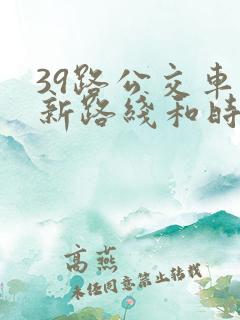 39路公交车
新路线和时
高燕
未经同意禁止转载